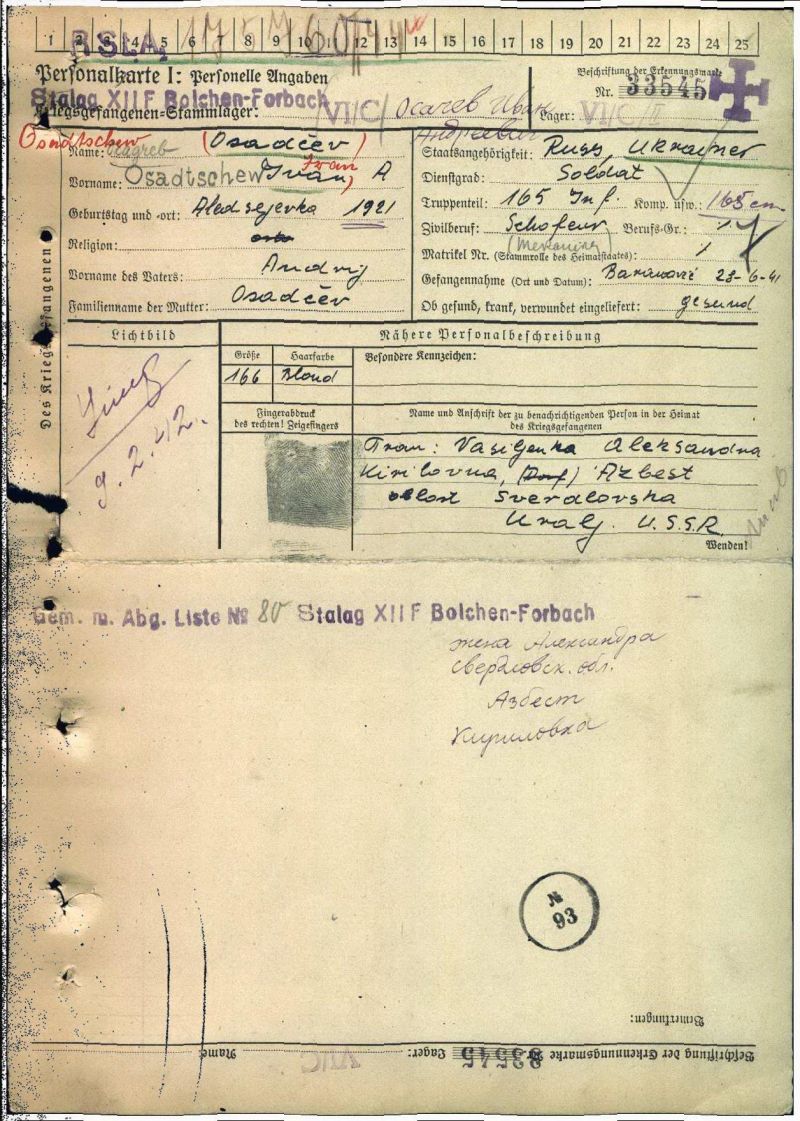 1 2 3 4 5 6 7 8 9 10 11 12 13 14 15 16 17 18 19 20 21 22 23 24 25
R.St.A.
Personalkarte I: Personelle Angaben
Beschriftung der Erkennungsmarke
Stalag XII F Bolchen-Forbach
Nr. 33545
Kriegsgefangenen-Stammlager: VI/C/ Осачев Иван
Lager: VI/C/
Osadtschew
Des Kriegsgefangenen
Name: (Osadčev)
Staatsangehörigkeit: Russ, Ukrainer
Vorname: Osadtschew Ivan, Iwan A
Dienstgrad: Soldat
Geburtstag und -ort: 1921
Truppenteil: 165 Inf. Komp. usw.: 165 cm
Religion:
Zivilberuf: Schofeur Berufs-Gr.:
Matrikel Nr. (Stammrolle des Heimatstaates): /
Vorname des Vaters: Andrij
Gefangennahme (Ort und Datum): 23-6-41
Familienname der Mutter: Osadčev
Ob gesund, krank, verwundet eingeliefert: gesund
Lichtbild
Nähere Personalbeschreibung
Größe
Haarfarbe
Besondere Kennzeichen:
166
Blond
9.2.42.
Fingerabdruck
des rechten! Zeigefingers
Name und Anschrift der zu benachrichtigenden Person in der Heimat
des Kriegsgefangenen
Frau: Vasiljenka Aleksandra
Kirilovna, (Dorf) Azbest
oblost Sverdlovska
Uralj. U.S.S.R.
Wenden!
Gem. m. Abg. Liste № 80 Stalag XII F Bolchen-Forbach
жена Александра
Свердловск. обл.
Азбест
Кириловка
№
93
Bemerkungen:
Beschriftung der Erkennungsmarke Nr. 33545 Lager: VI/C Name: